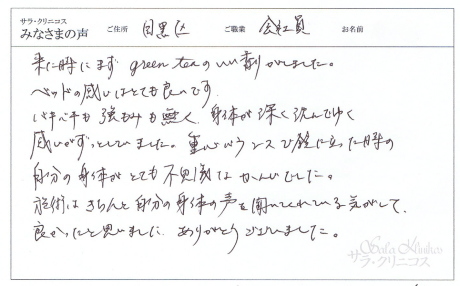 サラ・クリニコス
みなさまの声 ご住所 目黒区 ご職業 会社員 お名前
来た時にまず green teaのいい香りがしました。
ベッドの感じはとても良いです
バキバキも強もみも無く、身体が深く沈んでゆく
感じがずっとしていました。重心バランスで鏡に立った時の
自分の身体がとても不思議なかんじでした。
施術はきちんと自分の身体の声を聞いてくれている気がして、
良かったと思いました。ありがとうございました。
Sala Klinikos
サラ・クリニコス